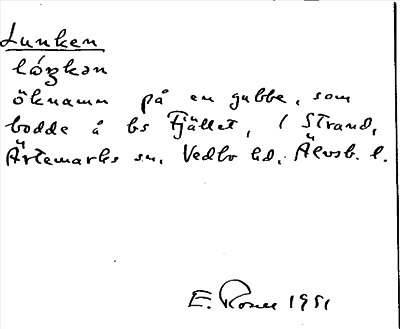 Lunken
lóŋkən
öknamn på en gubbe, som
bodde å bs Fjället, i Strand,
Ärtemarks sn, Vedbo hd, Älvsb. l.
E. Rosell 1951